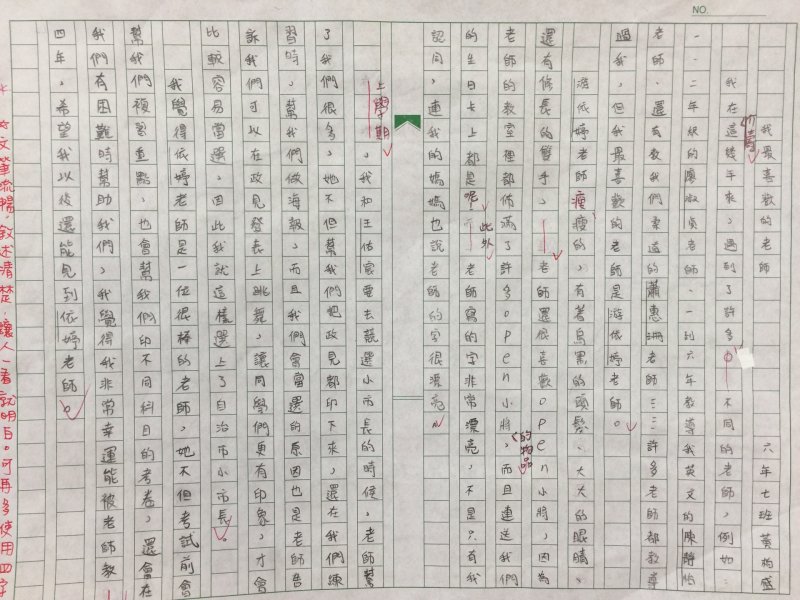 NO.
我最喜歡的老師 六年七班 黃柏盛
我在這幾年來，遇到了許多不同的老師，例如：
一、二年級的廖淑貞老師、一到六年教導我英文的陳靜怡
老師、還有教我們柔道的蕭惠珊老師……許多老師都教導
過我，但我最喜歡的老師是游依婷老師。
游依婷老師瘦瘦的，有著烏黑的頭髮、大大的眼睛、
還有修長的雙手，老師還很喜歡open小將，因為
老師的教室裡都佈滿了許多open小將的物品，而且連送我們
的生日卡上都是呢！此外老師寫的字非常漂亮，不是只有我
認同，連我的媽媽也說老師的字很漂亮。
上學期，我和王佑宸要去競選小市長的時候，老師幫
了我們很多，她不但幫我們把政見都印下來，還在我們練
習時，幫我們做海報，而且我們會當選的原因也是老師告
訴我們可以在政見發表上跳舞，讓同學們更有印象，才會
比較容易當選，因此我就這樣選上了自治市小市長。
我覺得依婷老師是一位很棒的老師，她不但考試前會
幫我們複習重點，也會幫我們印不同科目的考卷，還會在
我們有困難時幫助我們，我覺得我非常幸運能被老師教
四年，希望我以後還能見到依婷老師。
＊文筆流暢，敘述清楚，讓人一看就明白。可再多使用四字